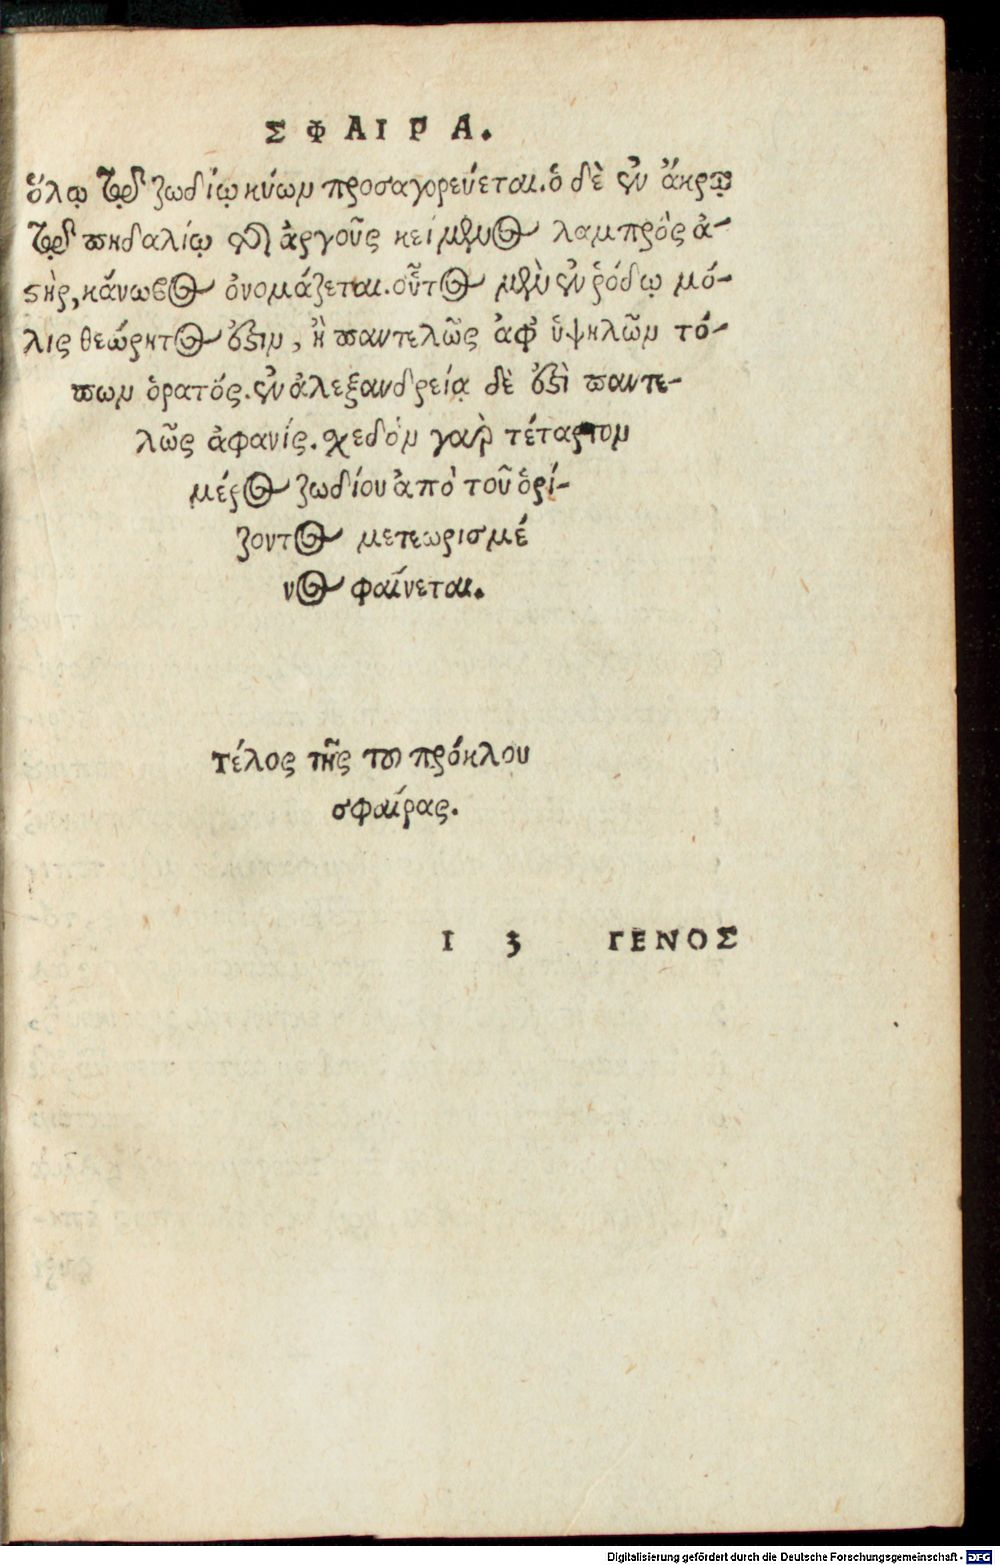 ΣΦΑΙΡΑ.
ὅλῳ τῷ ζωδίῳ κύων προσαγορεύεται. ὁ δὲ ἐν ἄκρῳ
τῷ πηδαλίῳ τῆ ἀργοῦς κείμενος λαμπρὸς ἀ-
στὴρ, κάνωβος ὀνομάζεται. οὗτος μὲν ἐν ῥόδῳ μό-
λις θεώρητος ἐστιν, ἢ παντελῶς ἀφ᾽ ὑψηλῶν τό-
πων ὁρατός. ἐν ἀλεξανδρείᾳ δὲ ἐστὶ παντε-
λῶς ἀφανίς. χεδὸν γαρ τέταρτον
μέρος ζωδίου ἀπὸ τοῦ ὁρί-
ζοντος μετεωρισμέ
νος φαίνεται.
τέλος τῆς του πρόκλου
σφαίρας.
Ι 3 ΓΕΝΟΣ
Digitalisierung gefördert durch die Deutsche Forschungsgemeinschaft - DFG